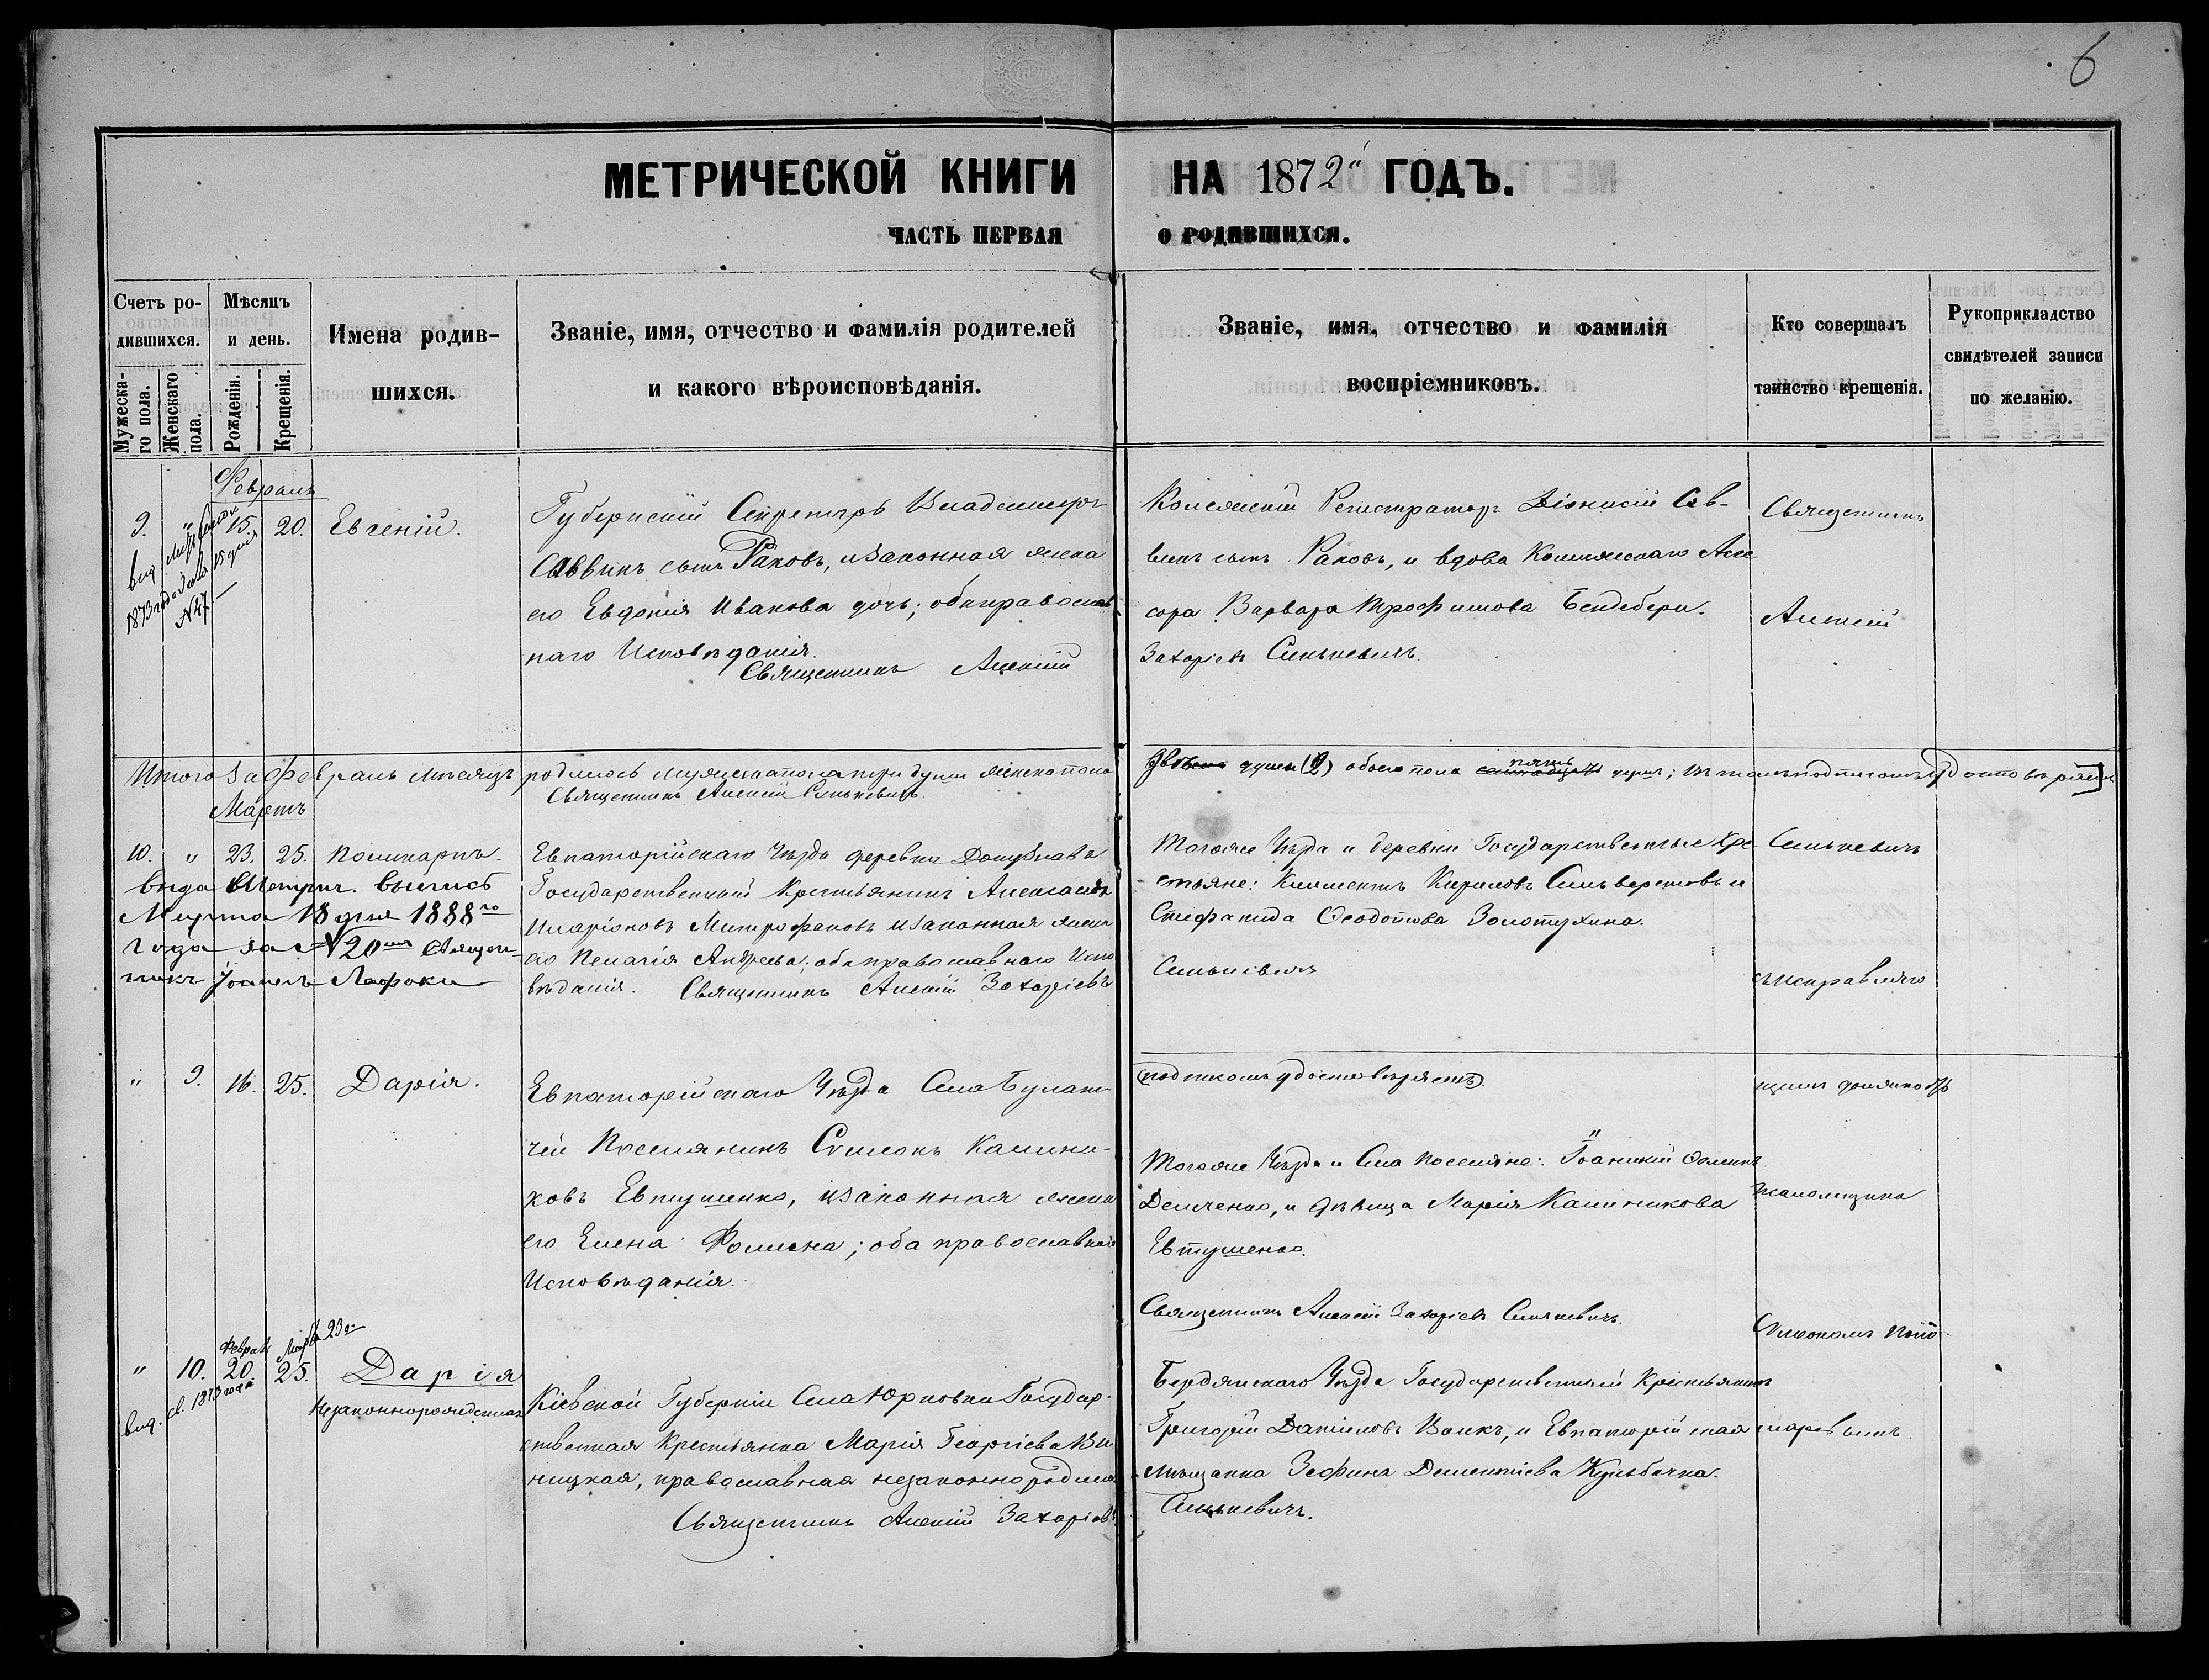 6
МЕТРИЧЕСКОЙ КНИГИ НА 1872й ГОДЪ.
ЧАСТЬ ПЕРВАЯ О РОДИВШИХСЯ.
Счетъ ро-
дившихся.
Мужеска-
го пола.
Женскаго
пола.
Мѣсяцъ
и день.
Рожденія.
Крещенія.
Имена родив-
шихся.
Званіе, имя, отчество и фамилія родителей
и какого вѣроисповѣданія.
Званіе, имя, отчество и фамилія
воспріемниковъ.
Кто совершалъ
таинство крещенія.
Рукоприкладство
свидѣтелей записи
по желанію.
Февраль
9. " 15. 20. Евгеній.
1873 года
15 дня
№ 47
Губернскій Секретарь Владимиръ
Саввинъ сынъ Раковъ, и законная жена
его Евдокія Иванова дочь; оба православ
наго Исповѣданія.
Священникъ Алексій
Колежскій Регистраторъ Діонисій Сав-
винъ сынъ Раковъ, и вдова Колежскаго Ассе
сора Варвара Трофимова Бендебери.
Захаріевъ Синькевичъ.
Священникъ
Алексій
Итого за Февраль мѣсяцъ родилось мужеска пола три души женска пола
двѣ души (2) обоего пола пять душъ; въ томъ подписомъ удостовѣряемъ
Священникъ Алексій Синькевичъ.
Мартъ
10. " 23. 25. Поликарпъ.
выда Метрич. выпись
Марта 18 дня 1888го
года за № 20мъ Священ-
никъ Іоаннъ Лафоки
Евпаторійскаго Уѣзда деревни Донузлавъ
Государственный Крестьянинъ Александръ
Иларіоновъ Митрофановъ и законная жена
его Пелагія Андреева; оба православнаго Испо
вѣданія. Священникъ Алексій Захаріевъ
Тогоже Уѣзда и деревни Государственные Кре
-стьяне: Климентъ Кириловъ Сильверстовъ и
Стефанида Ѳеодотова Золотухина.
Синькевичъ
Синькевичъ
съ исправляю
" 9. 16. 25. Дарія.
Евпаторійскаго Уѣзда Села Бугана-
чи Поселянинъ Симеонъ Калини-
ковъ Евтушенко, и законная жена
его Елена Фомина; оба православнаго
Исповѣданія.
(подписомъ удостовѣряетъ).
Тогоже Уѣзда и Села поселяне: Іоаникій Фоминъ
Демченко, и дѣвица Марія Калиникова
Евтушенко.
Священникъ Алексій Захаріевъ Синькевичъ.
щимъ должность
псаломщика
" 10. Февраля 20. Марта 25. Дарія
Незаконнорожденная
1873 года
Кіевской Губерніи Села Юрковки Государ-
ственная Крестьянка Марія Георгіева Ви
ницкая, православная незаконно родила
Священникъ Алексій Захаріевъ
Бердянскаго Уѣзда Государственный Крестьянинъ
Григорій Даниловъ Волкъ, и Евпаторійская
мѣщанка Зефина Дементіева Кульбачка.
Синькевичъ.